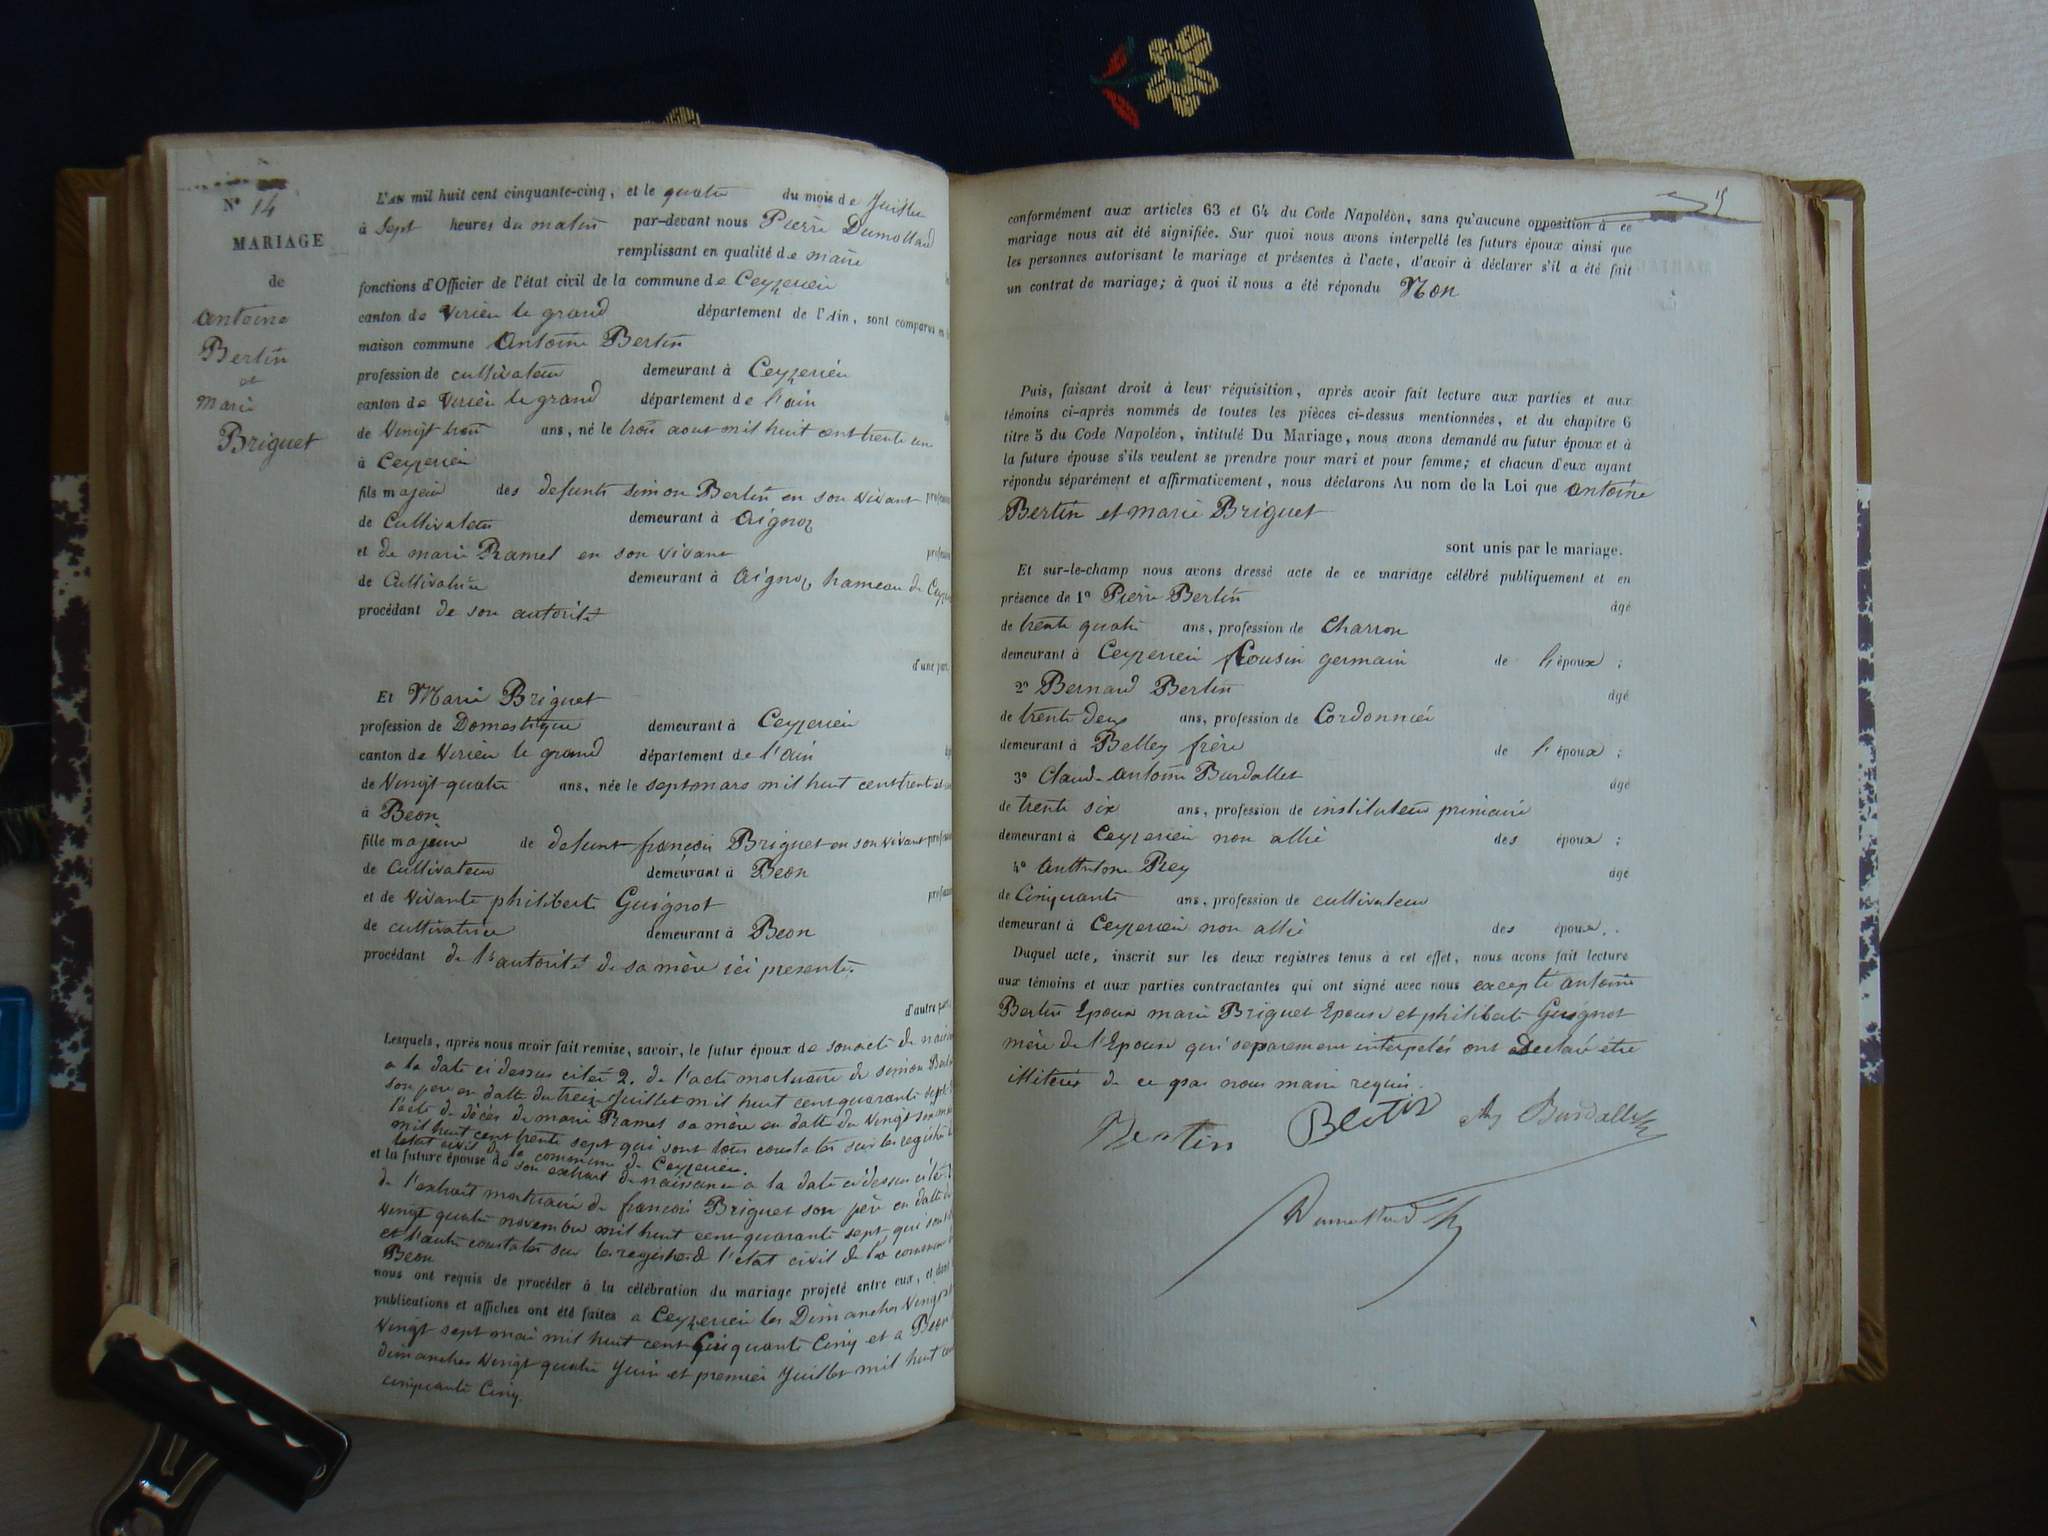 Nº 14
MARIAGE
de
Antoine
Bertin
et
Marie
Briguet
L'AN mil huit cent cinquante-cinq, et le quatre du mois de Juillet
à Sept heures du matin par-devant nous Pierre Dumollard
remplissant en qualité de maire
fonctions d'Officier de l'état civil de la commune de Ceyzerieu
canton de Virieu le grand département de l'Ain, sont comparus en
maison commune Antoine Bertin
profession de cultivateur demeurant à Ceyzerieu
canton de Virieu le grand département de l'ain
de Vingt trois ans, né le trois aout mil huit cent trente un
à Ceyzerieu
fils majeur des defunts simon Bertin en son vivant
de Cultivateur demeurant à Aignoz
et de marie Ramel en son vivant
de Cultivatrice demeurant à Aignoz hameau de
procédant de son autorité
d'une part.
Et Marie Briguet
profession de Domestique demeurant à Ceyzerieu
canton de Virieu le grand département de l'ain
de Vingt quatre ans, née le sept mars mil huit cent trente et
à Beon
fille majeure de defunt françois Briguet en son vivant
de Cultivateur demeurant à Beon
et de vivante philiberte Guignot
de cultivatrice demeurant à Beon
procédant de l'autorité de sa mère ici presente.
d'autre part.
Lesquels, après nous avoir fait remise, savoir, le futur époux de son acte de
a la date ci dessus citée 2. de l'acte mortuaire de simon
son père en datte du treize Juillet mil huit cent quarante sept
l'acte de décès de marie Ramel sa mère en datte du vingt six
mil huit cent trente sept qui sont tous constatés sur les registres de
létat civil de la commune de Ceyzerieu.
et la future épouse de son extrait de naissance a la date ci dessus citée
de l'extrait mortuaire de françois Briguet son père en datte du
vingt quatre novembre mil huit cent quarante sept qui sont
et l'autre constatés sur les registres de l'état civil de la commune
Beon
nous ont requis de procéder à la célébration du mariage projeté entre eux, et dont
publications et affiches ont été faites a Ceyzerieu les Dimanches Vingt
Vingt sept mai mil huit cent Cinquante Cinq et a Beon
dimanches Vingt quatre Juin et premier Juillet mil huit cent
cinquante Cinq.
15
conformément aux articles 63 et 64 du Code Napoléon, sans qu'aucune opposition à ce
mariage nous ait été signifiée. Sur quoi nous avons interpellé les futurs époux ainsi que
les personnes autorisant le mariage et présentes à l'acte, d'avoir à déclarer s'il a été fait
un contrat de mariage; à quoi il nous a été répondu Non
Puis, faisant droit à leur réquisition, après avoir fait lecture aux parties et aux
témoins ci-après nommés de toutes les pièces ci-dessus mentionnées, et du chapitre 6
titre 5 du Code Napoléon, intitulé Du Mariage, nous avons demandé au futur époux et à
la future épouse s'ils veulent se prendre pour mari et pour femme; et chacun d'eux ayant
répondu séparément et affirmativement, nous déclarons Au nom de la Loi que Antoine
Bertin et marie Briguet
sont unis par le mariage.
Et sur-le-champ nous avons dressé acte de ce mariage célébré publiquement et en
présence de 1º Pierre Bertin âgé
de trente quatre ans, profession de Charron
demeurant à Ceyzerieu Cousin germain de l'époux ;
2º Bernard Bertin âgé
de trente deux ans, profession de Cordonnier
demeurant à Belley frère de l'époux ;
3º Claude Antoine Burdallet âgé
de trente six ans, profession de instituteur primaire
demeurant à Ceyzerieu non allié des époux ;
4º Anthelme Rey âgé
de Cinquante ans, profession de cultivateur
demeurant à Ceyzerieu non allié des époux.
Duquel acte, inscrit sur les deux registres tenus à cet effet, nous avons fait lecture
aux témoins et aux parties contractantes qui ont signé avec nous excepté antoine
Bertin Epoux marie Briguet Epouse et philiberte Guignot
mère de l'Epouse qui separement interpelés ont declaré être
illiterés de ce par nous maire requis.
Bertin Bertin Burdallet
Dumollard